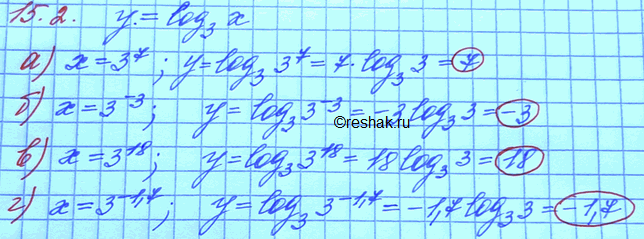 15.2. y = log₃ x
а) x = 3⁷; y = log₃ 3⁷ = 7 · log₃ 3 = 7
б) x = 3⁻³; y = log₃ 3⁻³ = -3 log₃ 3 = -3
©reshak.ru
в) x = 3¹⁸; y = log₃ 3¹⁸ = 18 log₃ 3 = 18
г) x = 3^(-1,7); y = log₃ 3^(-1,7) = -1,7 log₃ 3 = -1,7